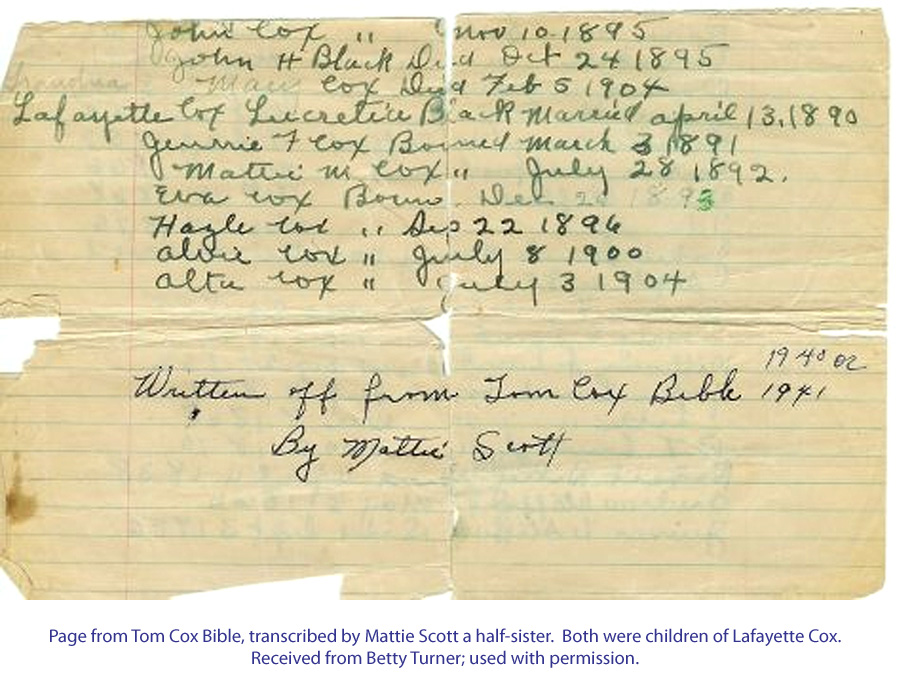 John Cox " Nov 10 1895
John H Black Died Oct 24 1895
Grandma Mary Cox Died Feb 5 1904
Lafayette Cox Lucretia Black Married april 13, 1890
Jennie F Cox Borned March 3 1891
Mattie M. Cox " July 28 1892.
Eva Cox Borne Dec 1893
Hazle Cox " Sep 22 1896
alvie Cox " July 8 1900
alta Cox " July 3 1904
1940 or
Written off from Tom Cox Bible 1941
By Mattie Scott
Page from Tom Cox Bible, transcribed by Mattie Scott a half-sister. Both were children of Lafayette Cox.
Received from Betty Turner; used with permission.